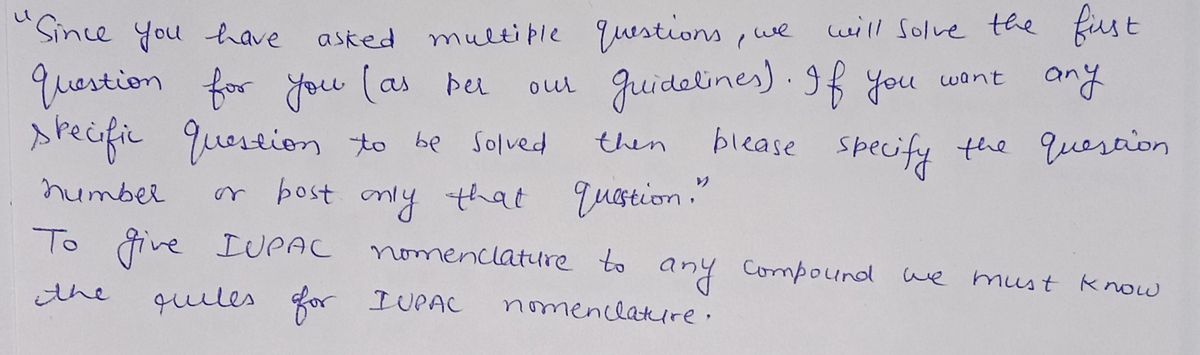 "Since you have asked multiple questions, we will solve the first
question for you (as per our guidelines). If you want any
specific question to be solved then please specify the question
number or post only that question."
To give IUPAC nomenclature to any compound we must know
the rules for IUPAC nomenclature.